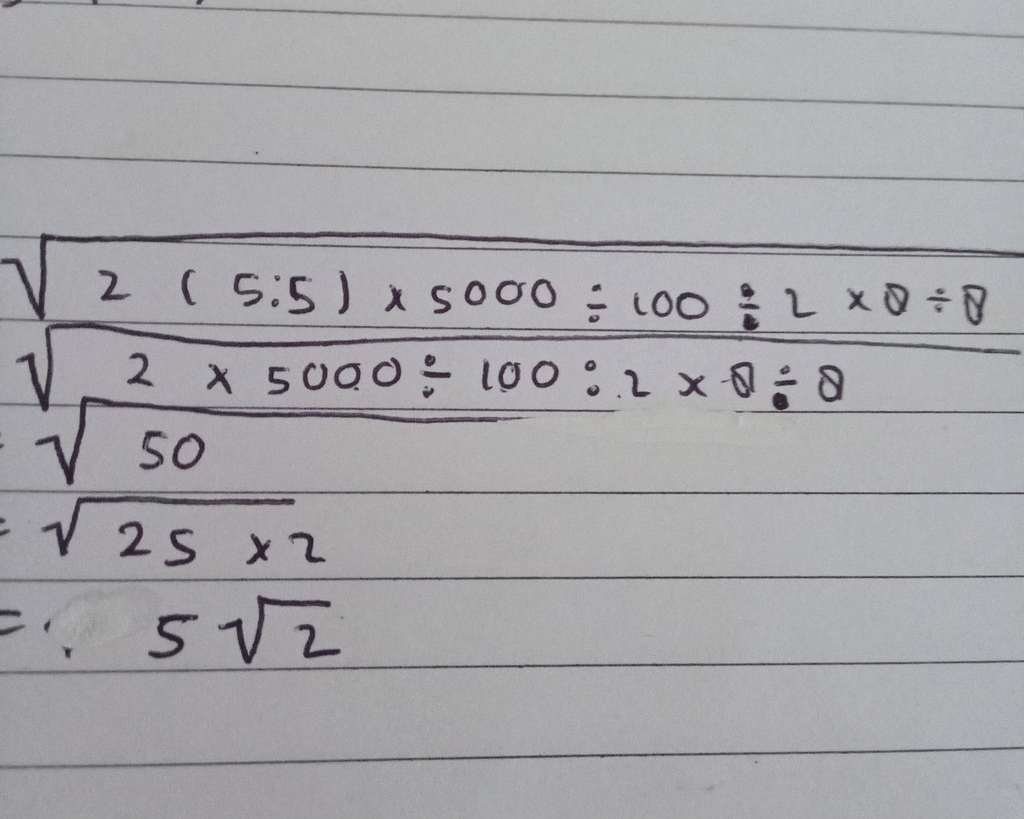 √2 ( 5:5 ) × 5000 ÷ 100 ÷ 2 × 0 ÷ 0
√2 × 5000 ÷ 100 : 2 × 0 ÷ 0
= √50
= √25 × 2
= 5 √2